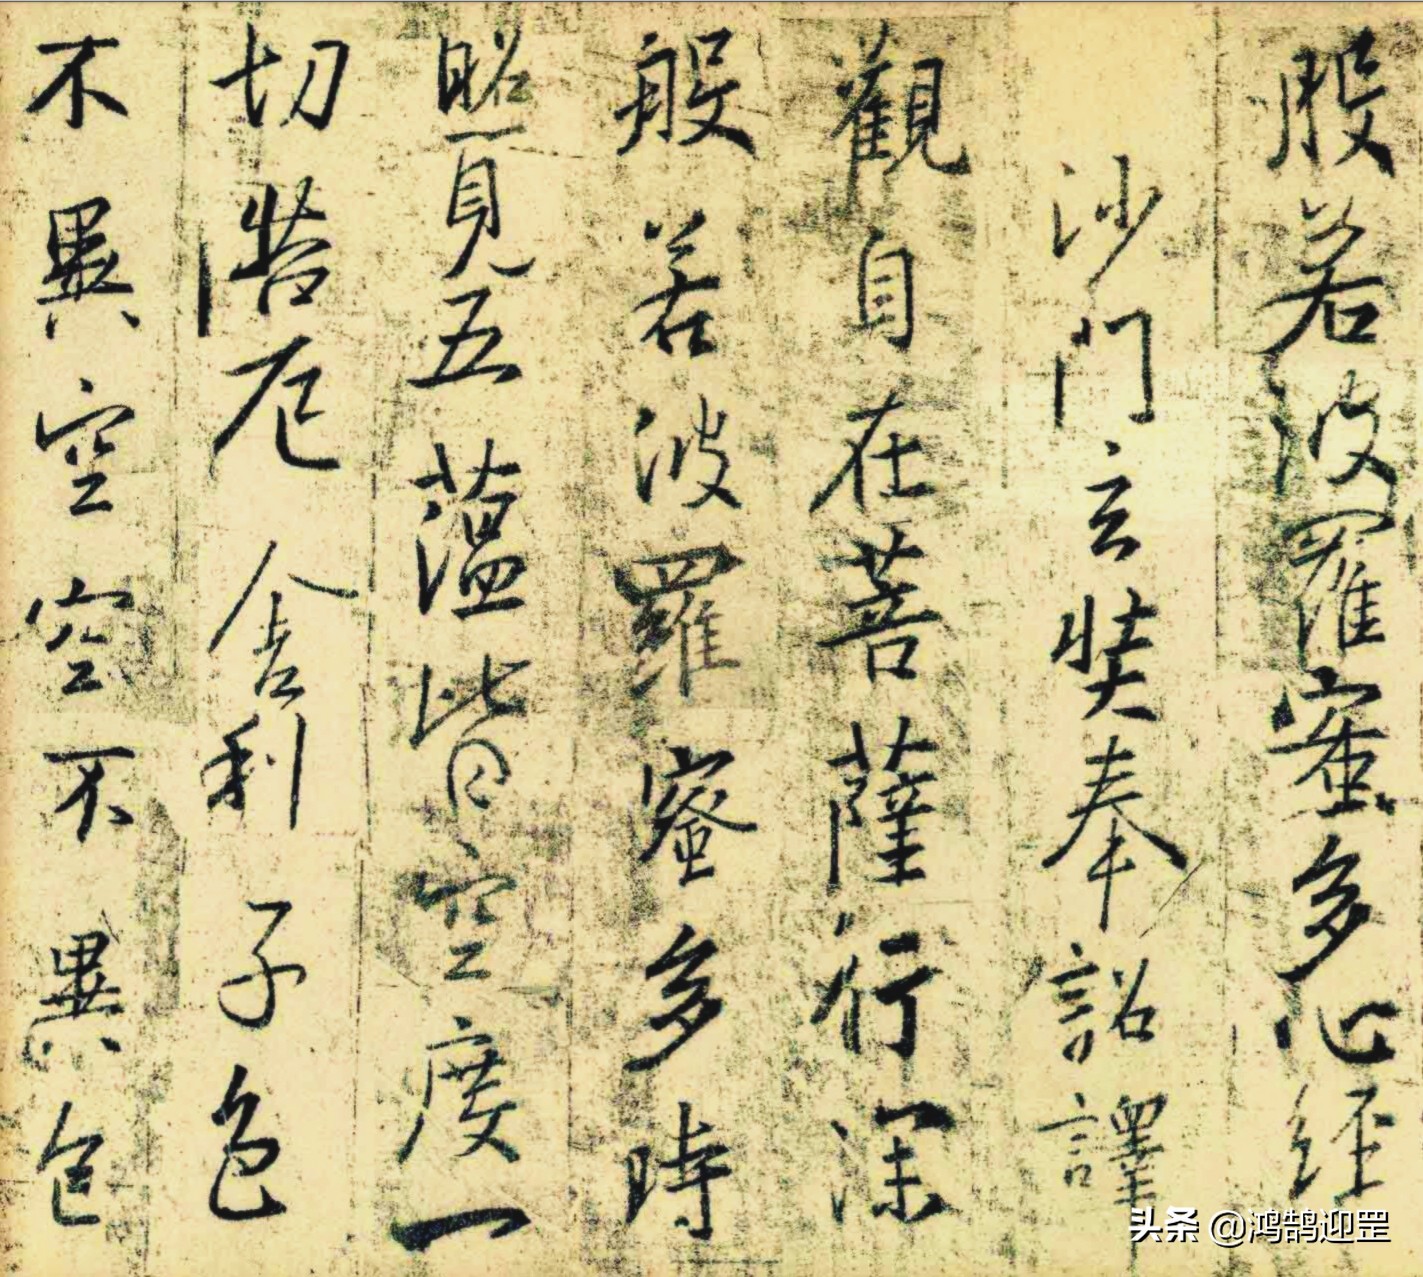 般若波羅蜜多心經
沙門玄奘奉詔譯
觀自在菩薩行深
般若波羅蜜多時
照見五蕰皆空度一
切苦厄舍利子色
不異空空不異色
头条 @鸿鹄迎罡